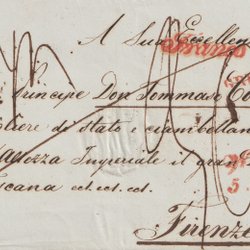 A Sua Eccellen
Franco
Principe Don Tommaso Co
liere di Stato e ciambellan
altezza Imperiale il gran
scana ect. ect. ect.
5
Firenze